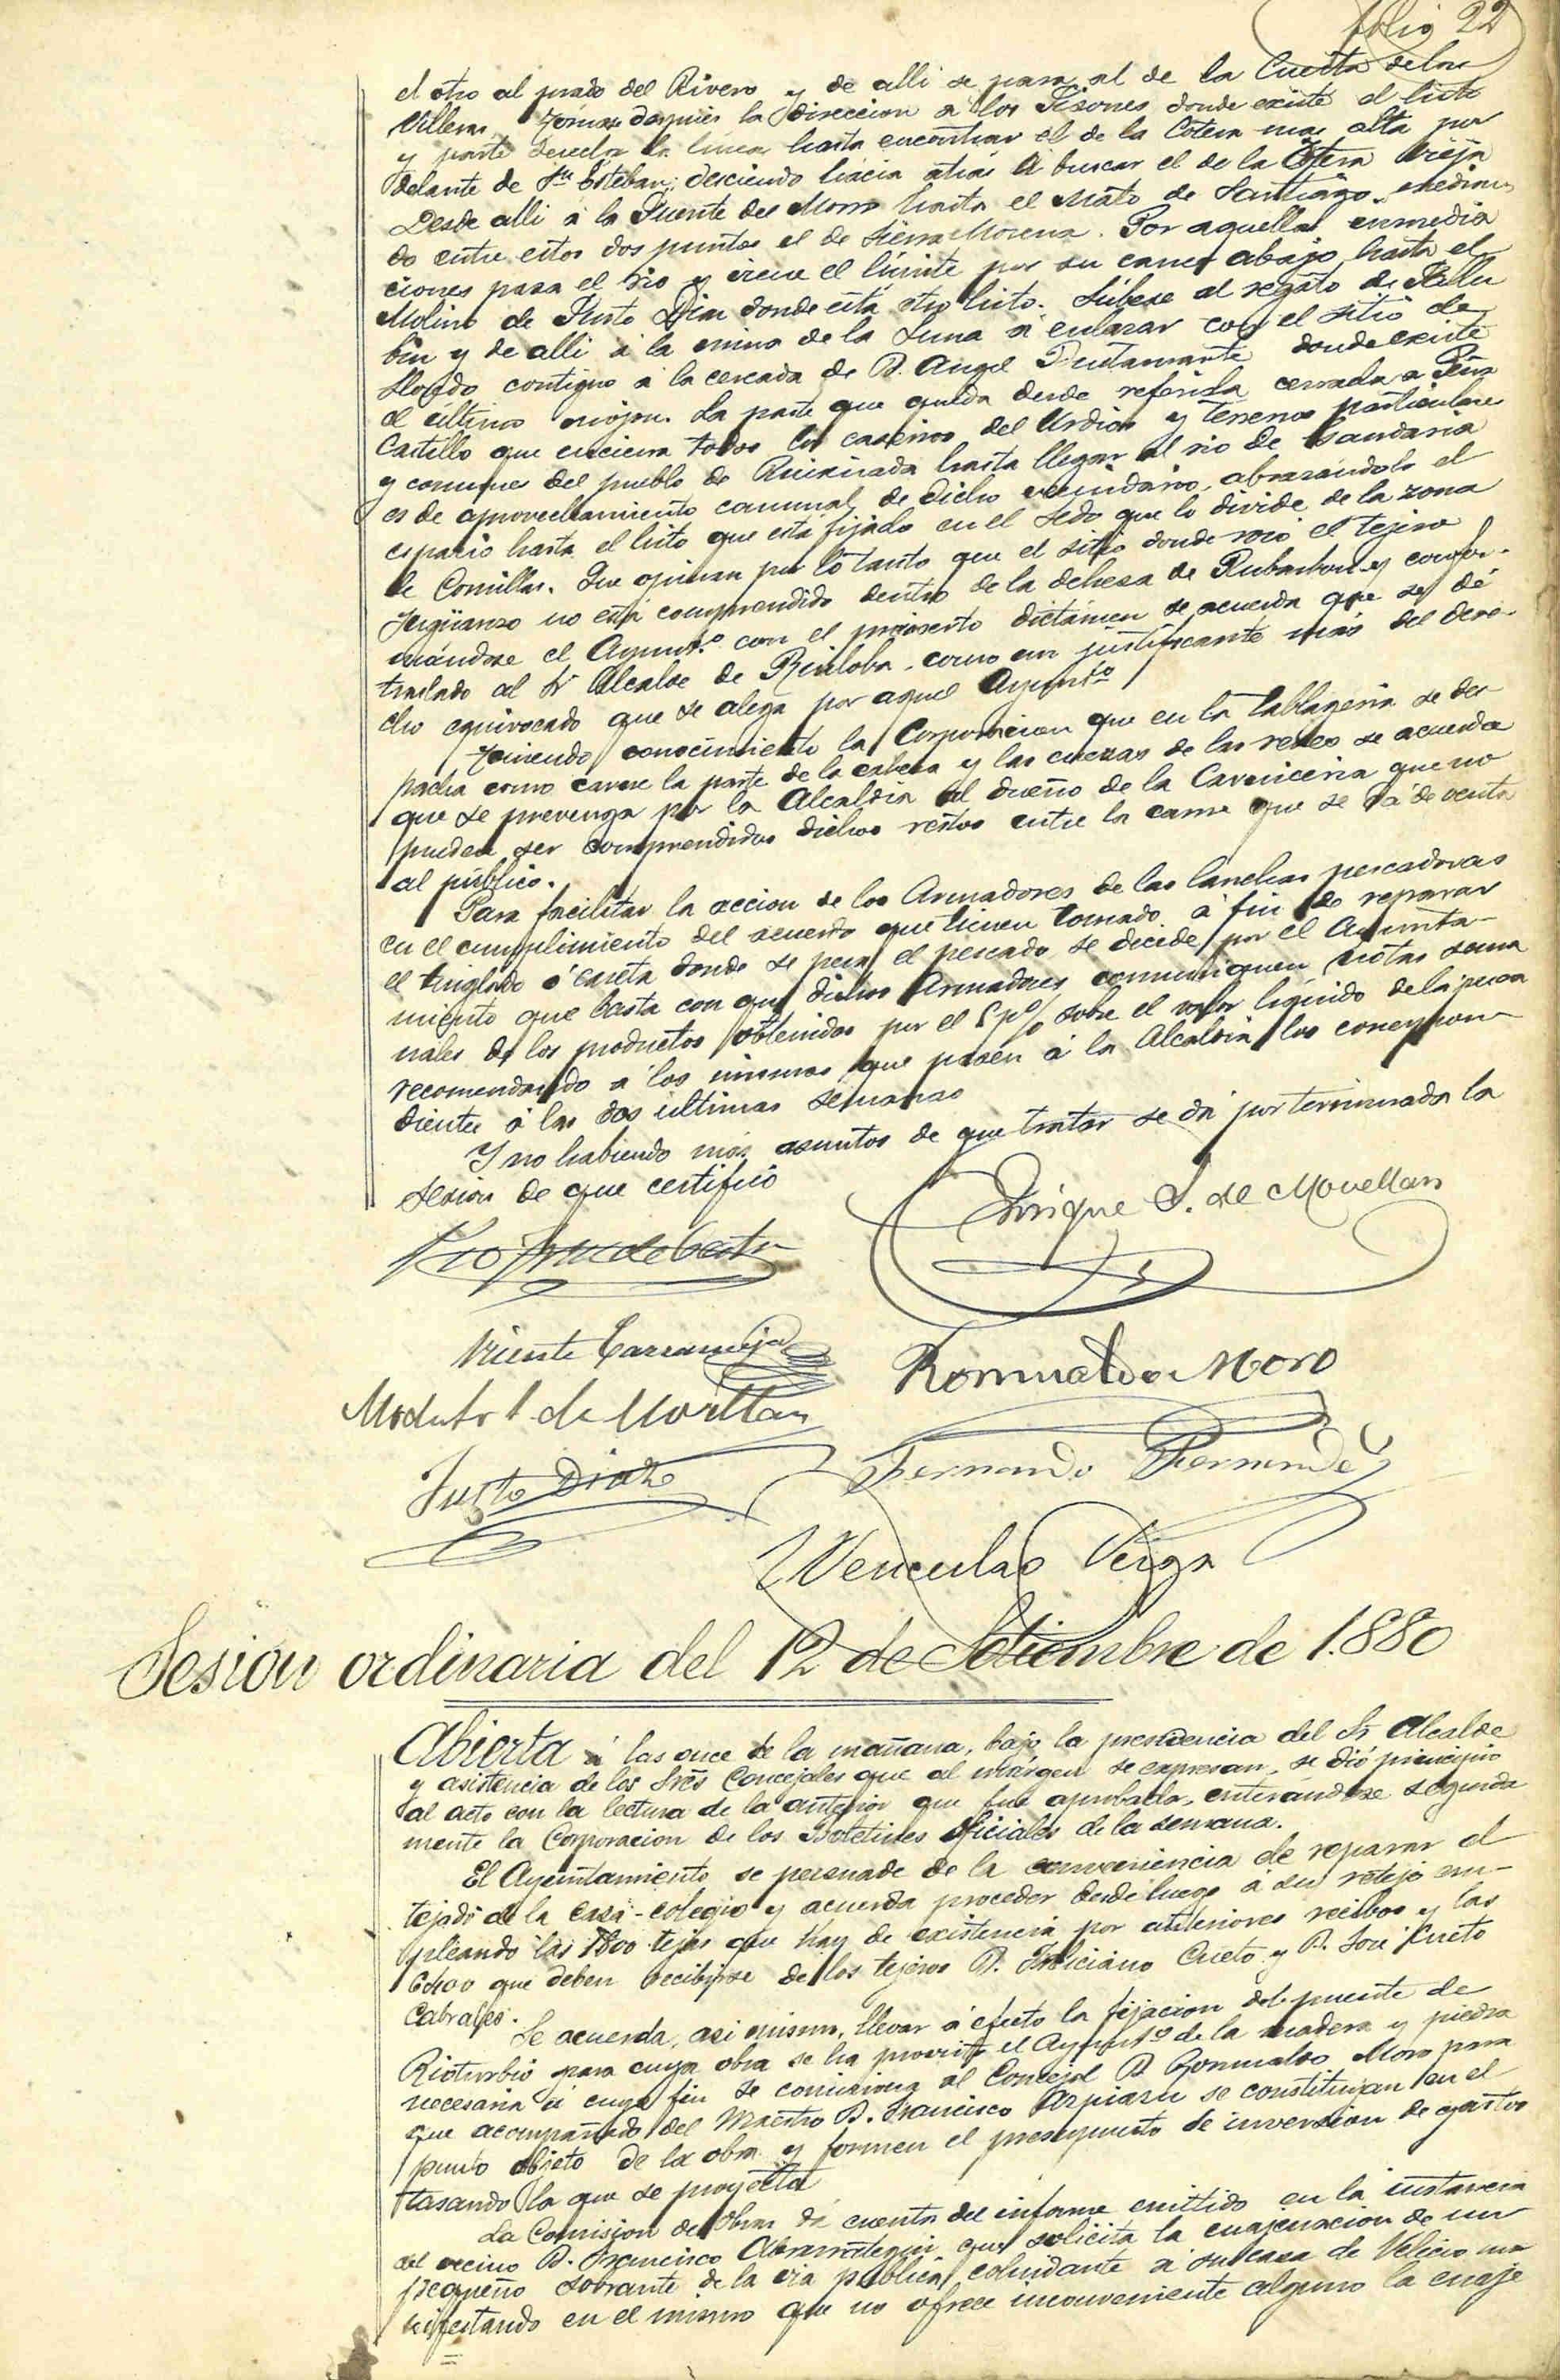 folio 22
el otro al prado del Rivero y de alli se pasa al de la Cuesta de las
Villeras. Tómase despues la direccion a los Tisones donde existe el hito
y parte derecha la linea hasta encontrar el de la Cotera mas alta por
delante de Sn Esteban; desciende hácia atrás á buscar el de la Cotera vieja
Desde alli á la Fuente del Moro hasta el Mato de Santiago, median
do entre estos dos puntos el de Sierra Morena. Por aquellas inmedia
ciones pasa el rio y sigue el limite por su cauce abajo, hasta el
Molino de Justo Diaz donde está otro hito. Súbese al regato de
bin y de alli á la mina de la Luna á enlazar con el sitio de
Llosdo contiguo á la cercada de D. Angel Bustamante donde existe
el último mojon. La parte que queda desde referida cerrada a Peña
Castillo que encierra todos los caserios del Urdios y terrenos particulares
y comunes del pueblo de Ruiseñada hasta llegar al rio de Gandaria
es de aprovechamiento comunal de dicho vecindario, abrazándolo el
espacio hasta el hito que está fijado en el Sedo que lo divide de la zona
de Comillas. Que opinan por lo tanto que el sitio donde rozó el tejero
Junguanzo no está comprendido dentro de la dehesa de Rubarbon y confor-
mándose el Ayuntº con el preinserto dictámen se acuerda que se dé
traslado al Sr Alcalde de Ruiloba, como un justificante más del dere-
cho equivocado que se alega por aquel Ayuntº
Teniendo conocimiento la Corporacion que en la tablageria se des
pacha como carne la parte de la cabeza y las cuezas de las reses se acuerda
que se prevenga por la Alcaldia al dueño de la Carniceria que no
pueden ser comprendidos dichos restos entre la carne que se dá de venta
al público.
Para facilitar la accion de los Armadores de las lanchas pescadoras
en el cumplimiento del acuerdo que tienen tomado á fin de reparar
el tinglado ó caseta donde se pesa el pescado se decide por el Ayunta-
miento que basta con que dichos Armadores comuniquen notas sema
nales de los productos obtenidos por el 5 p% sobre el valor liquido de la pesca
recomendando a los mismos que pasen á la Alcaldia las correspon-
dientes á las dos ultimas semanas
Y no habiendo más asuntos de que tratar se dá por terminada la
sesion de que certifico
Enrique S. de Movellan
Vicente
Romualdo Moro
Modesto S. de Movellan
Justo Diaz
Fernando Fernandez
Wenceslao Veiga
Sesion ordinaria del 12 de Setiembre de 1.880
Abierta á las once de la mañana, bajo la presidencia del Sr Alcalde
y asistencia de los Sres Concejales que al márgen se expresan, se dió principio
al acto con la lectura de la anterior que fué aprobada, enterándose seguida
mente la Corporacion de los Boletines oficiales de la semana.
El Ayuntamiento se persuade de la conveniencia de reparar el
tejado de la casa-colegio y acuerda proceder desde luego á su retejo em-
pleando las 1800 tejas que hay de existencia por anteriores recibos y las
6400 que deben recibirse de los tejeros D. Feliciano Cueto y D. José Cueto
Cabrales.
Se acuerda, asi mismo, llevar á efecto la fijacion del puente de
Rioturbio para cuya obra se ha provisto el Ayuntº de la madera y piedra
necesaria á cuyo fin se comisiona al Concejal D. Romualdo Moro para
que acompañado del Maestro D. Francisco Arpiazu se constituyan en el
punto objeto de la obra y formen el presupuesto de inversion de gastos
tasando la que se proyecta
La Comision de Obras dá cuenta del informe emitido en la instancia
del vecino D. Francisco Abarrategui que solicita la enajenacion de un
pequeño sobrante de la via publica, colindante á su casa de Velecio ma
nifestando en el mismo que no ofrece inconveniente alguno la enaje